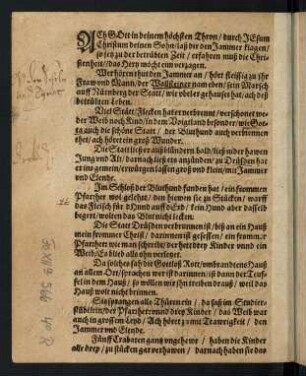 ACh GOtt in deinem höchsten Thron / durch JEsum
Christum deinen Sohn / laß dir den Jammer klagen /
so jetz zu der betrübten Zeit / erfahren muß die Chri-
stenheit / das Hertz möcht eim verzagen.
Wer hören thut den Jammer an / hört fleissig zu jhr
Fraw und Mann / der Wallsteiner nam eben / sein Marsch
auff Nürnberg der Statt / wie ubel er gehauset hat / ach deß
betrübten Leben.
Viel Stätt / Flecken hat er verbrennt / verschonet we-
der Weib noch Kind / in dem Voigtland besonder / wie Goi-
tz auch die schöne Statt / der Bluthund auch verbrennen
thet / ach höret ein groß Wunder.
Die Statt liesse er außblündern bald / ließ nider hawen
Jung und Alt / darnach ließ ers anzünden / zu
gemein / erwürgen lassen groß und klein / mit Jammer
und Elende.
Im Schloß der Bluthund funden hat / ein frommen
Pfarrher wol gelehrt / den hawen sie zu Stücken / warff
das Fleisch für d Hund auff d Erd / kein Hund aber dasselb
begert / wolten das Blut nicht lecken.
Die Statt verbrunnen ist / biß an ein Hauß
mein frommer Christ / darinnen ist gesessen / ein fromm-
Pfarrherr wie man schreibt / der het drey Kinder und ein
Weib / Es blieb alls ihn verlegt.
Da solches sah die Gottloß Rott / umbranden s Hauß
an allem Ort / sprachen wer ist darinnen: ist dann der Teuf-
fel in dem Hauß / so wöllen wir jhn treiben drauß / weil das
Hauß weit nicht brinnen.
Sie sprangen alle Thüren ein / da saß im Studier-
stüblein / der Pfarrher und drey Kinder / das Weib war
auch in grossem Leyd / Ach höret zu mit Trawrigkeit / den
Jammer und Elende.
Fünff Crabaten gantz ungehewr / haben die Kinder
alle drey / zu stücken gar verhawen / darnach haben sie das